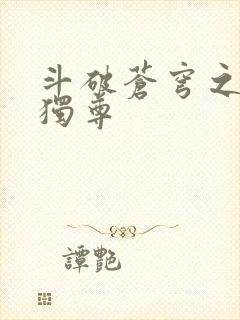 斗破蒼穹之
獨尊
譚艷